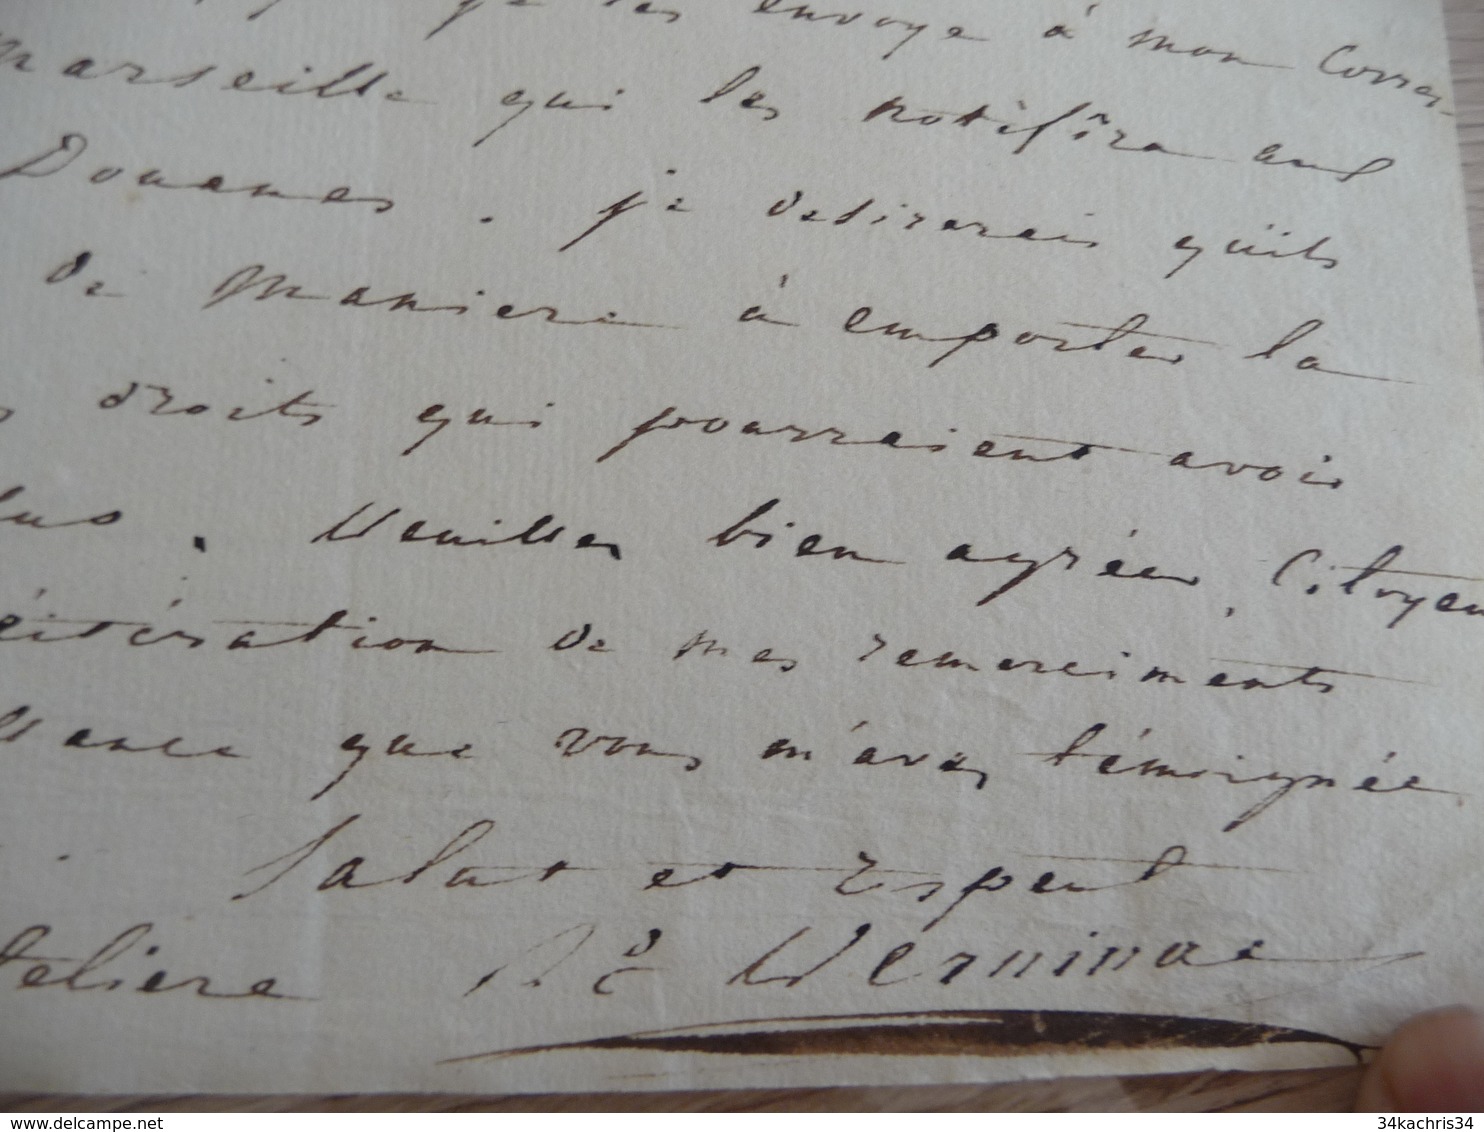 je les envoye à mon Corres-
Marseille qui les notifîra aux
Douanes. je desirerais qu'ils
de maniere à emporter la
droits qui pourraient avoir
lus. Veuillez bien agréer, Citoyen
éitération de mes remerciments
llance que vous m'avez témoignée
Salut et respect
teliere Verninac
34kachris34
www.delcampe.net